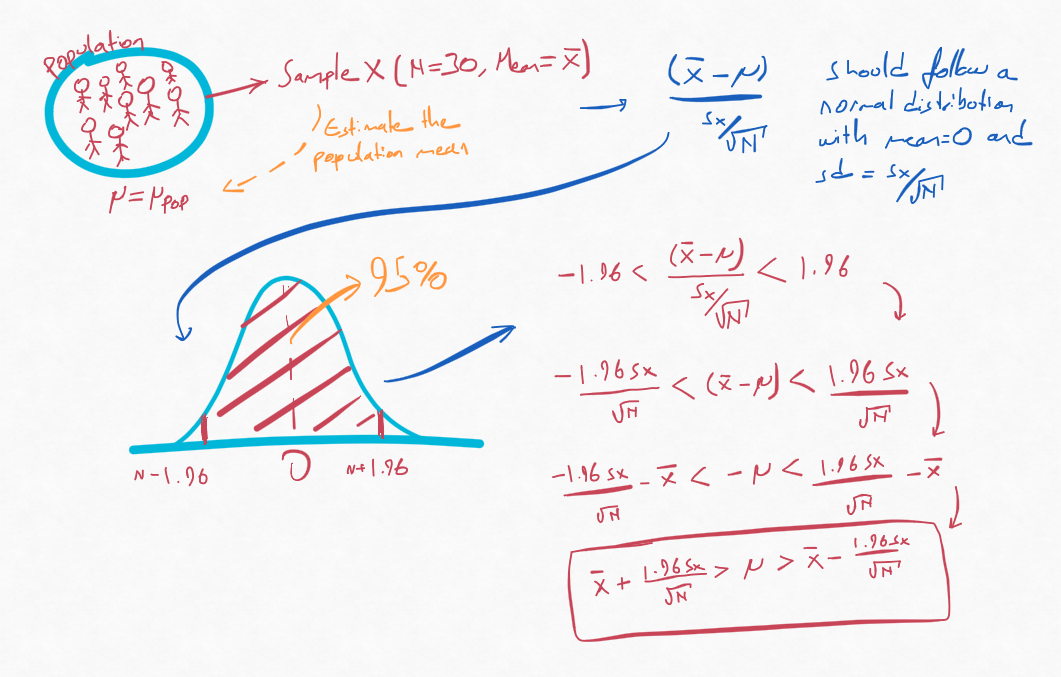 Population
Sample X (N=30, Mean= x̄)
Estimate the
population mean
μ = μpop
(x̄ - μ)
sx/√N
should follow a
normal distribution
with mean=0 and
sd = sx/√N
95%
~ -1.96
0
~ +1.96
-1.96 < (x̄-μ) / (sx/√N) < 1.96
-1.96 sx/√N < (x̄ - μ) < 1.96 sx/√N
-1.96 sx/√N - x̄ < -μ < 1.96 sx/√N - x̄
x̄ + 1.96 sx/√N > μ > x̄ - 1.96 sx/√N